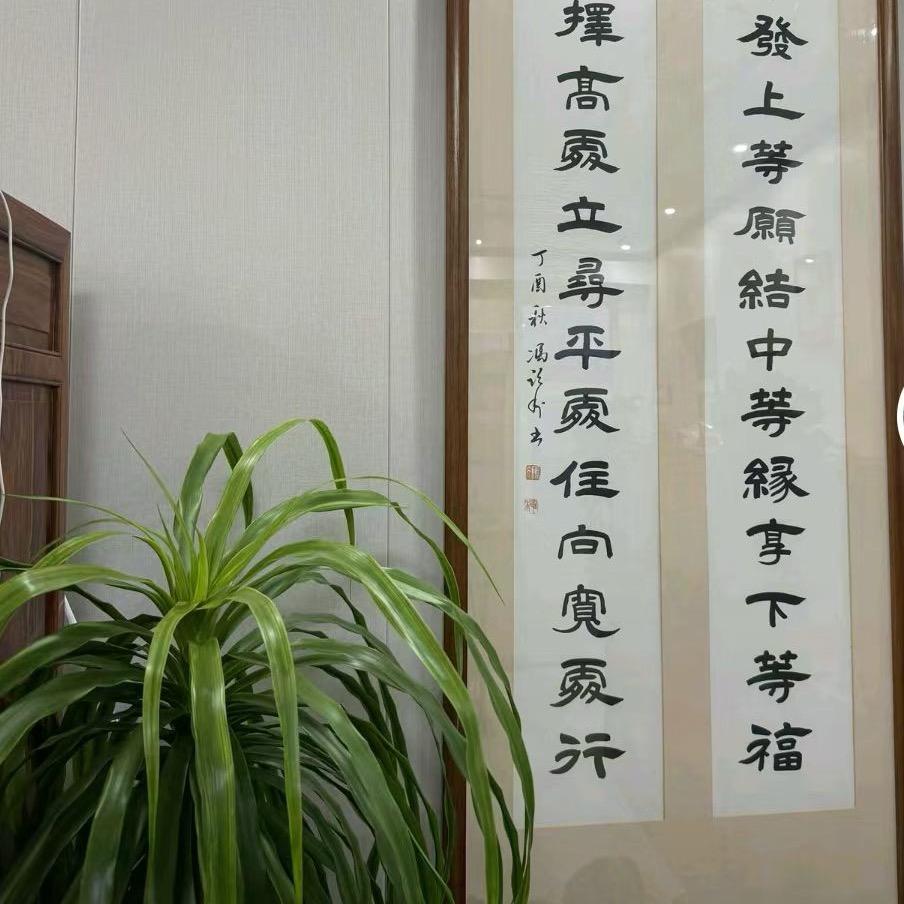 發上等願結中等緣享下等福
擇高處立尋平處住向寬處行
丁酉秋馮
书